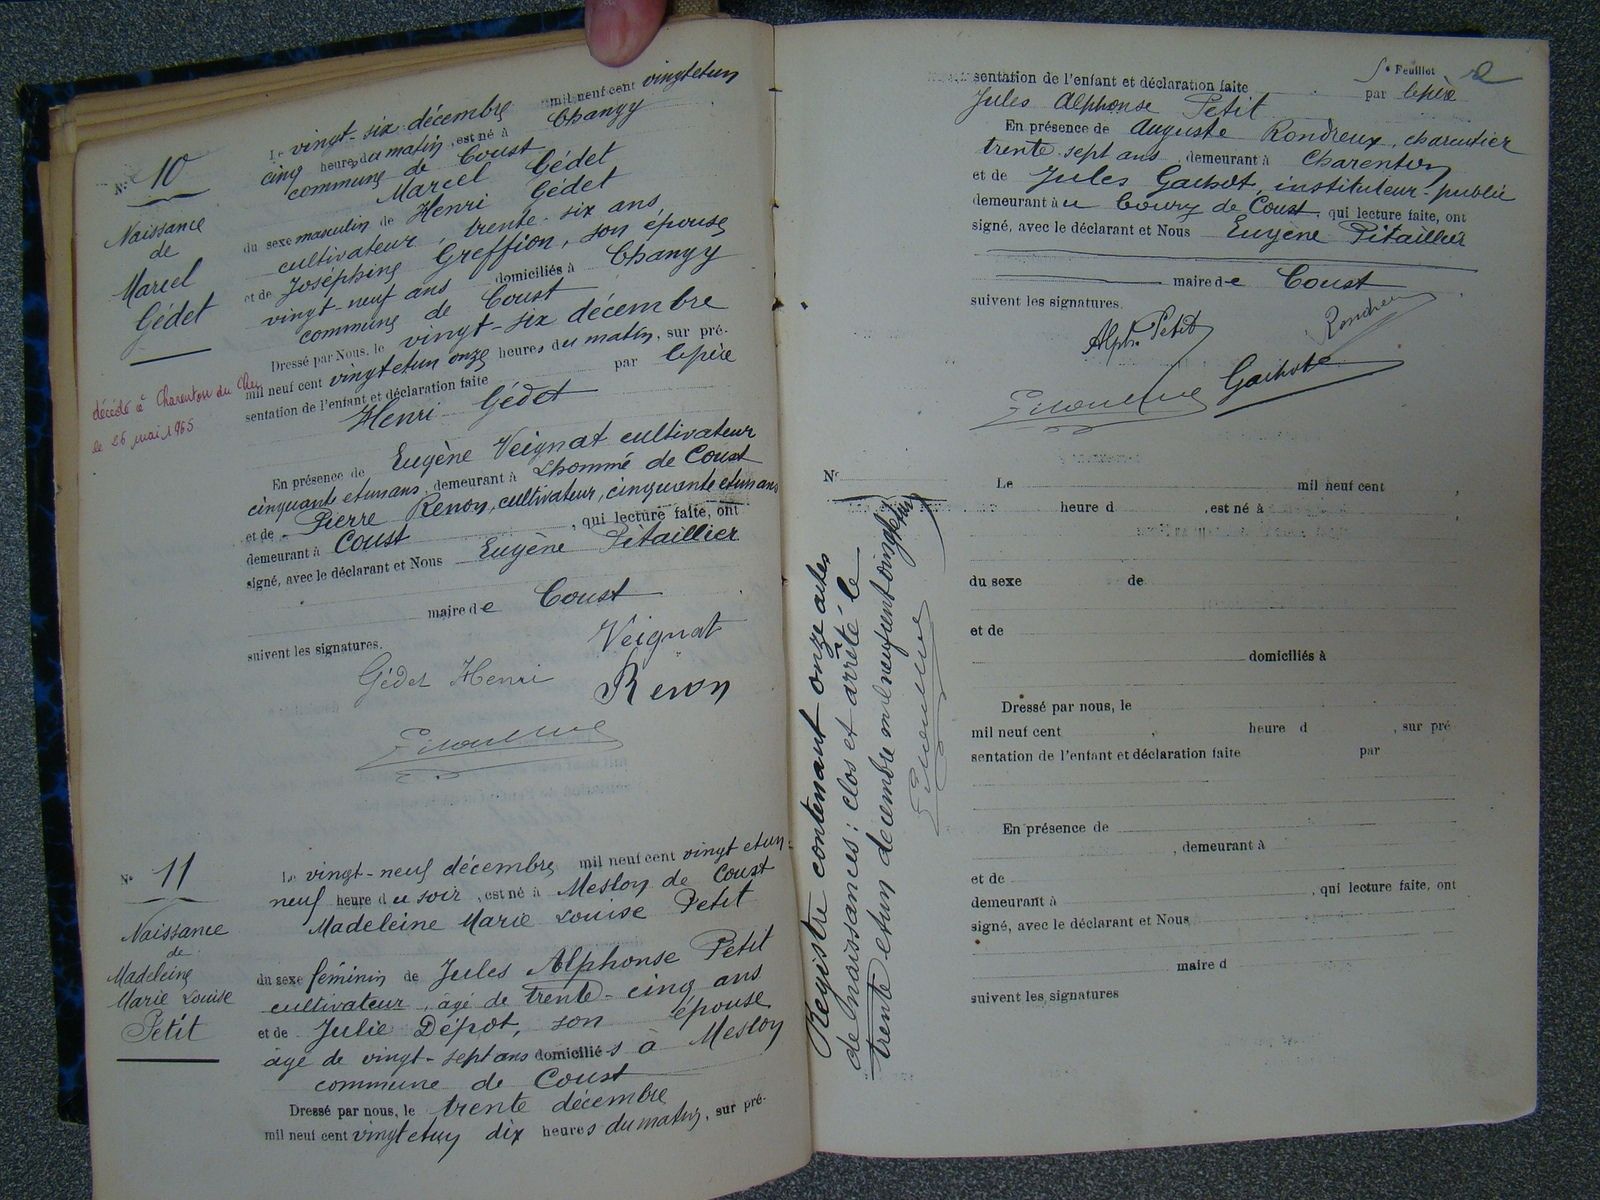 N° 10
Naissance
de
Marcel
Gédet
décédé à Charenton du Cher
le 26 mai 1965
Le vingt-six décembre mil neuf cent vingt et un
cinq heures du matin, est né à Changy
commune de Coust
Marcel Gédet
du sexe masculin de Henri Gédet
cultivateur, trente-six ans,
et de Joséphine Greffion, son épouse
vingt-neuf ans domiciliés à Changy
commune de Coust
Dressé par Nous, le vingt-six décembre
mil neuf cent vingt et un onze heures du matin, sur pré-
sentation de l'enfant et déclaration faite par le père
Henri Gédet
En présence de Eugène Veignat cultivateur
cinquante et un ans, demeurant à Lhommé de Coust
et de Pierre Renon, cultivateur, cinquante et un ans
demeurant à Coust, qui lecture faite, ont
signé, avec le déclarant et Nous Eugène Pitaillier
maire de Coust
suivent les signatures.
Veignat
Gédet Henri
Renon
N° 11
Naissance
de
Madeleine
Marie Louise
Petit
Le vingt-neuf décembre mil neuf cent vingt et un-
neuf heure du soir, est né à Meslon de Coust
Madeleine Marie Louise Petit
du sexe féminin de Jules Alphonse Petit
cultivateur, âgé de trente-cinq ans
et de Julie Dépot, son épouse
âgé de vingt-sept ans domiciliés à Meslon
commune de Coust
Dressé par nous, le trente décembre
mil neuf cent vingt et un dix heures du matin, sur pré-
5e Feuillet
sentation de l'enfant et déclaration faite par le père
Jules Alphonse Petit
En présence de Auguste Rondreux, charcutier
trente-sept ans, demeurant à Charenton
et de Jules Gachot, instituteur-public
demeurant au Bourg de Coust, qui lecture faite, ont
signé, avec le déclarant et Nous Eugène Pitaillier
maire de Coust
suivent les signatures.
Alph. Petit
Rondreux
Gachot
Registre contenant onze actes
de Naissances: clos et arrêté le
trente et un décembre mil neuf cent vingt et un
N°
Le mil neuf cent
heure d , est né à
du sexe de
et de
domiciliés à
Dressé par nous, le
mil neuf cent , heure d , sur pré
sentation de l'enfant et déclaration faite par
En présence de
, demeurant à
et de
demeurant à , qui lecture faite, ont
signé, avec le déclarant et Nous
maire d
suivent les signatures